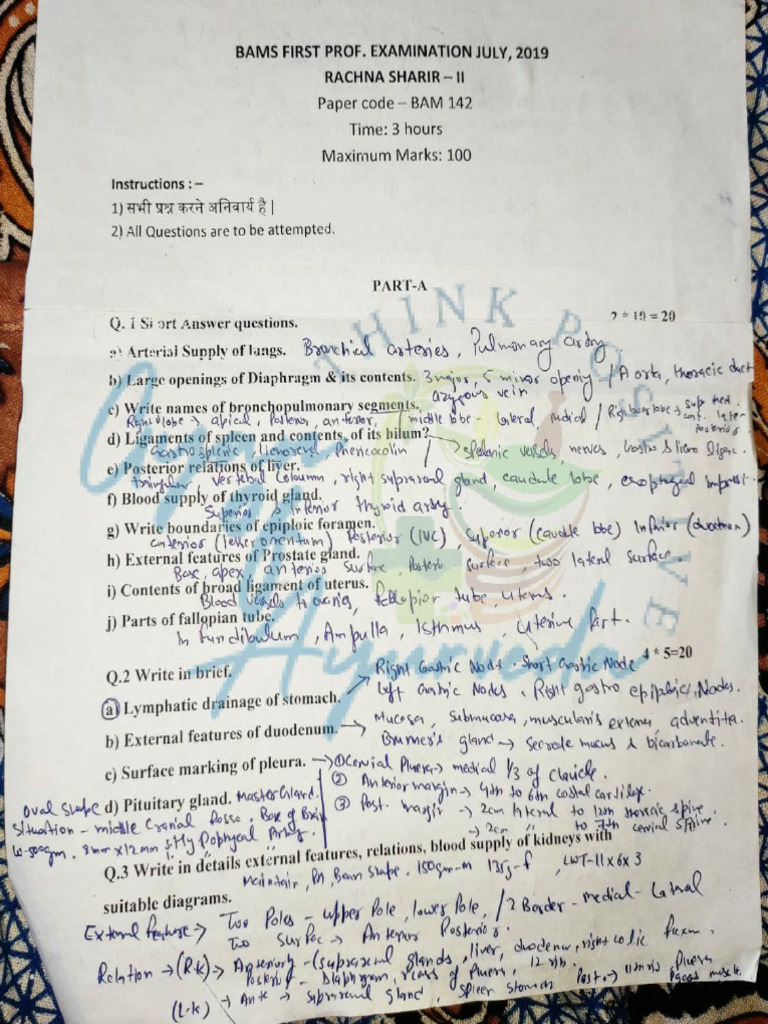 BAMS FIRST PROF. EXAMINATION JULY, 2019
RACHNA SHARIR – II
Paper code – BAM 142
Time: 3 hours
Maximum Marks: 100
Instructions : –
1) सभी प्रश्न करने अनिवार्य है |
2) All Questions are to be attempted.
PART-A
THINK POSITIVE
Q. 1 Short Answer questions. 2 * 10 = 20
a) Arterial Supply of lungs. Bronchial arteries, Pulmonary artry
b) Large openings of Diaphragm & its contents. 3 major, 5 minor opening / Aorta, thoracic duct
azygous vein
c) Write names of bronchopulmonary segments.
Right lobe → apical, Posterior, anterior, middle lobe - lateral medial /
d) Ligaments of spleen and contents, of its hilum?
Gastrosplenic, lienorenal, Phrenicocolin → splenic vessels, nerves,
e) Posterior relations of liver.
Vertebral Column, right suprarenal gland, caudate lobe, esophageal
f) Blood supply of thyroid gland.
Superior, inferior thyroid artry.
g) Write boundaries of epiploic foramen.
anterior (lesser omentum) Posterior (IVC), superior (caudte lobe) Inferior (duodenum)
h) External features of Prostate gland.
Base, apex, anterior surface, Posteri surface, two lateral surface.
i) Contents of broad ligament of uterus.
Blood vessels to ovaries, fallopior tube, uterus.
j) Parts of fallopian tube.
Infundibulum, Ampulla, Isthmus, Uterine Part.
Q.2 Write in brief. 4 * 5=20
Right Gastric Node, Short Gastric Node
a) Lymphatic drainage of stomach. Left Gastric Nodes, Right gastro epiploic Nodes.
b) External features of duodenum. → Mucosa, submucosa, muscularis externa adventita.
Brunner's gland → Secrete mucus & bicarbonate.
c) Surface marking of pleura. → ① Cervical Pluera → medial 1/3 of clavicle.
② Anterior margin → 4th to 6th costal cartilage.
d) Pituitary gland. Master Gland.
③ Post. margin → 2cm lateral to 12th thoracic spine.
→ 2cm " to 7th cervical spine.
Oval shape
Situation - middle Cranial fossa. Base of Brain
8mm x 12mm
Q.3 Write in details external features, relations, blood supply of kidneys with
Bean shape. 150gm-m 135g-f, LWT-11x6x3
suitable diagrams.
External feature → Two Poles - upper Pole, lower Pole, / 2 Border - medial - Lateral
Two Surface → Anterior Posterior.
Relation → (R.k) → Anteriorly - (suprarenal glands, liver, duodenum, right colic
Diaphragm, of Pluera, 12 rib.
(L.k) → Ante → suprarenal gland, spleen stomach Post. → Pluera